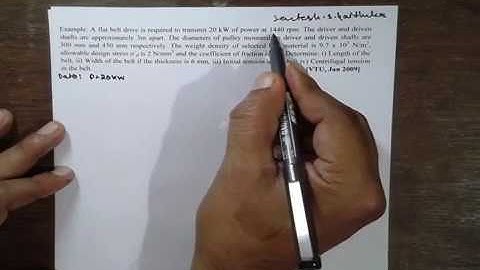 Example: A flat belt drive is required to transmit 20 kW of power at 1440 rpm. The driver and driven
shafts are approximately 3m apart. The diameters of pulley mounted on driver and driven shafts are
300 mm and 450 mm respectively. The weight density of selected material is 9.7 x 10 N/m³,
allowable design stress σ is 2 N/mm² and the coefficient of friction Determine: i) Length of the
belt, ii) Width of the belt if the thickness is 6 mm, iii) Initial tension iv) Centrifugal tension
in the belt. [VTU, Jan 2009]
Data: P=20kW